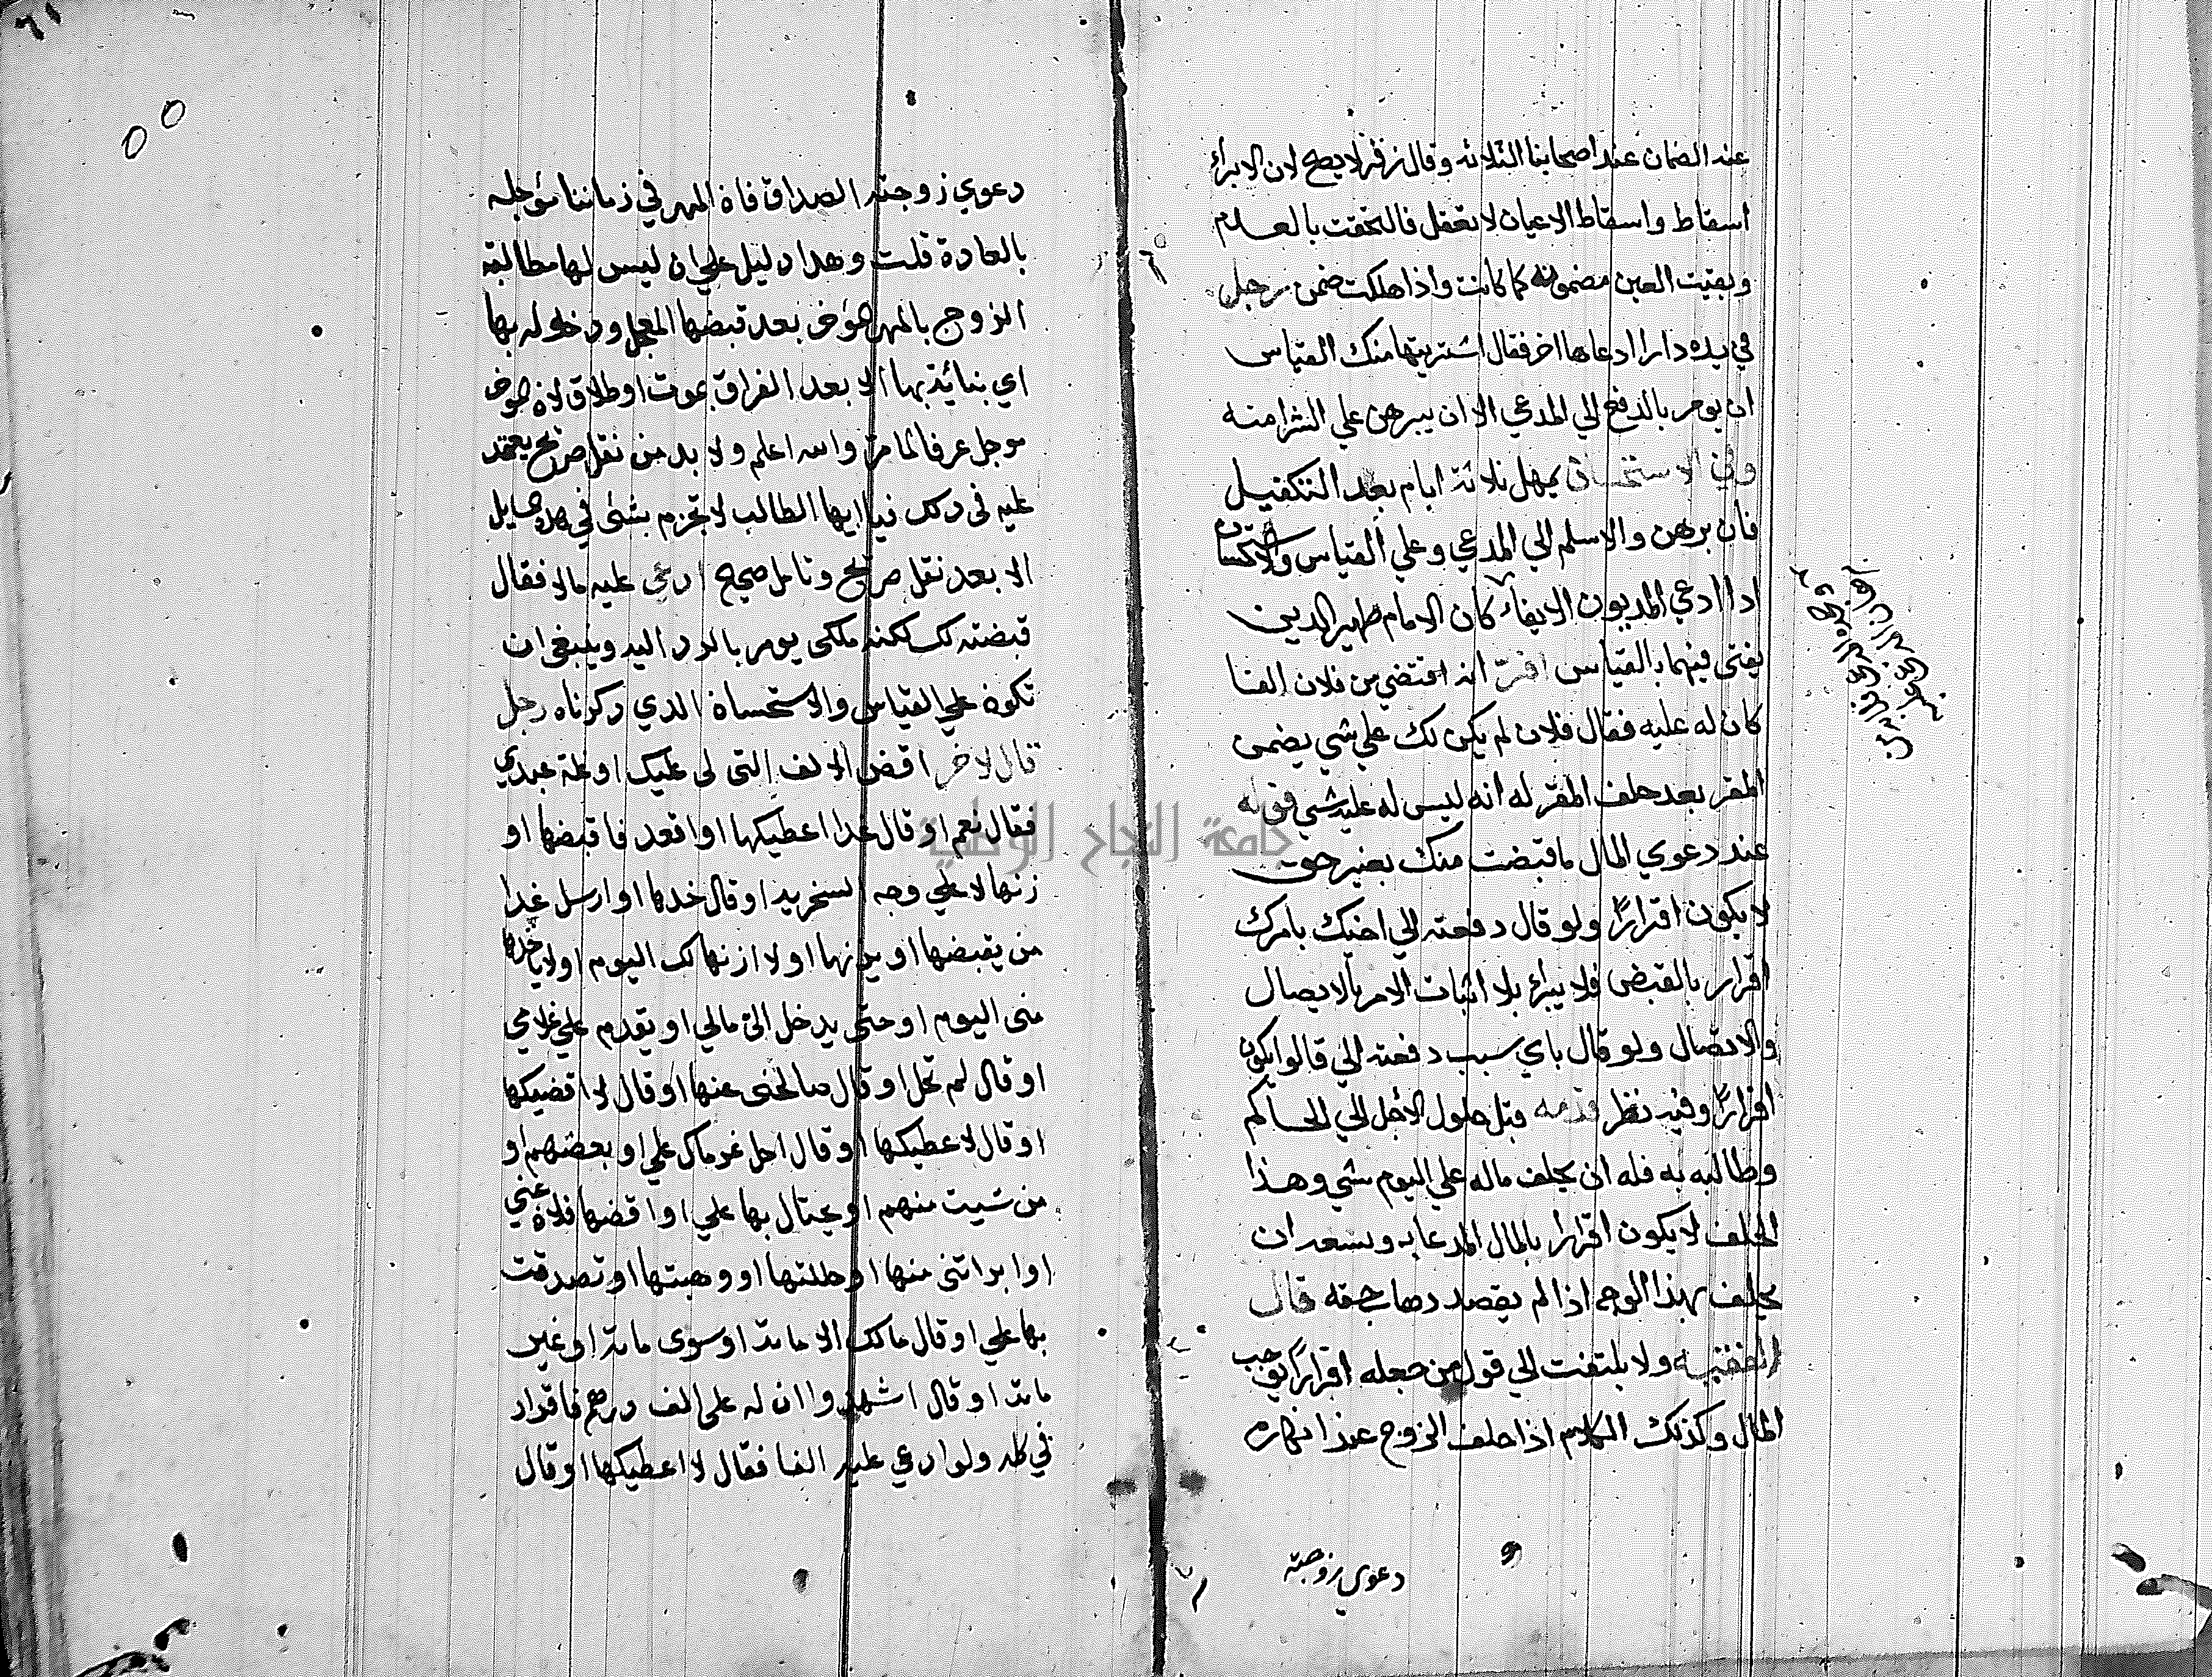 عند الضمان عند اصحابنا الثلاثه وقال زفر لا يصح لان الابراء
اسقاط واسقاط الاعيان لا تعقل فالتحقت بالعدم
وبقيت العين مضمونه كما كانت واذا هلكت ضمن رجل
في يده دار ادعاها اخر فقال اشتريتها منك القياس
ان يومر بالدفع الي المدعي الا ان يبرهن علي الشرا منه
وفي الاستحسان يمهل ثلاثة ايام بعد التكفيل
فان برهن والا سلم الي المدعي وعلي القياس والاستحسان
اذا ادعي المديون الايفاء كان الامام ظهير الدين
يفتي فيهما بالقياس اقر انه اقتضي من فلان الفا
كان له عليه فقال فلان لم يكن لك علي شي يضمن
المقر بعد حلف المقر له انه ليس له عليه شي قوله
عند دعوي المال ما قبضت منك بغير حق
لا يكون اقرارا ولو قال دفعته الي اخيك بامرك
اقرار بالقبض فلا يبرا بلا اثبات الامر بالايصال
والايصال ولو قال باي سبب دفعته الي قالوا يكون
اقرارا وفيه نظر قدمه قبل حلول الاجل الي الحاكم
وطالبه به فله ان يحلف ماله علي اليوم شي وهذا
الحلف لا يكون اقرارا بالمال المدعا به ويسعه ان
يحلف بهذا الوجه اذا لم يقصد دهاب حقه قال
الفقيه ولا يلتفت الي قول من جعله اقرارا يوجب
المال وكذلك الكلام اذا حلف الزوج عند انكاره
دعوي زوجته
دعوي زوجته الصداق فان المهر في زماننا مؤجله
بالعادة قلت وهدا دليل علي ان ليس لها مطالبة
الزوج بالمهر المؤخر بعد قبضها المعجل ودخوله بها
اي بنائه بها الا بعد الفراق بموت او طلاق لانه المؤخر
موجل عرفا كما مر والله اعلم ولا بد من نقل صريح يعتمد
عليه في دلك فيا ايها الطالب لا تجزم بشئ في هده المسايل
الا بعد نقل صريح وتامل صحيح ادعي عليه مالا فقال
قبضته لك لكنه ملكي يومر بالرد اليه وينبغي ان
تكون علي القياس والاستحسان الدي دكرناه رجل
قال لاخر اقض الالف التي لي عليك او غلة عبدي
فقال نعم او قال غدا اعطيكها او اقعد فاقبضها او
زنها لا علي وجه السخرية او قال خدها او ارسل غدا
من يقبضها او يزنها او لا ازنها لك اليوم او لا ياخدها
مني اليوم او حتي يدخل الي مالي او يقدم علي غلامي
او قال لم تحل او قال صالحني عنها او قال لا اقضيكها
او قال لا اعطيكها او قال احل غرماك علي او بعضهم او
من شيت منهم او يحتال بها علي او اقضها فلان عني
او ابراتني منها او حللتها او وهبتها او تصدقت
بها علي او قال مالك الا ماىة او سوي ماىة او غير
ماىة او قال اشهدوا ان له علي الف درهم فاقرار
في كله ولو ادعي عليه الفا فقال لا اعطيكها او قال
جامعة النجاح الوطنية